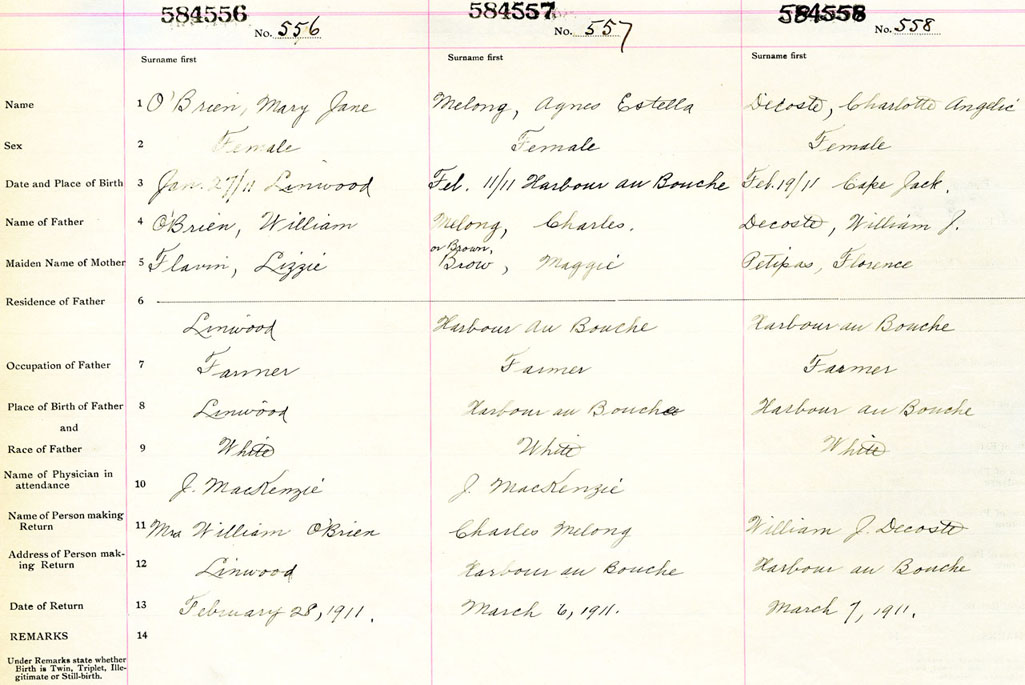 584556 584557 584558
No. 556 No. 557 No. 558
Surname first Surname first Surname first
Name 1 O'Brien, Mary Jane Melong, Agnes Estella Decoste, Charlotte Angelic
Sex 2 Female Female Female
Date and Place of Birth 3 Jan. 27/11 Linwood Feb. 11/11 Harbour au Bouche Feb. 19/11 Cape Jack.
Name of Father 4 O'Brien, William Melong, Charles. Decoste, William J.
or Brown,
Maiden Name of Mother 5 Flavin, Lizzie Brow, Maggie Petipas, Florence
Residence of Father 6
Linwood Harbour Au Bouche Harbour au Bouche
Occupation of Father 7 Farmer Farmer Farmer
Place of Birth of Father 8 Linwood Harbour au Bouche Harbour au Bouche
and
Race of Father 9 White White White
Name of Physician in
attendance 10 J. MacKenzie J. MacKenzie
Name of Person making
Return 11 Mrs William O'Brien Charles Melong William J. Decoste
Address of Person mak-
ing Return 12 Linwood Harbour au Bouche Harbour au Bouche
Date of Return 13 February 28, 1911. March 6, 1911. March 7, 1911.
REMARKS 14
Under Remarks state whether
Birth is Twin, Triplet, Ille-
gitimate or Still-birth.